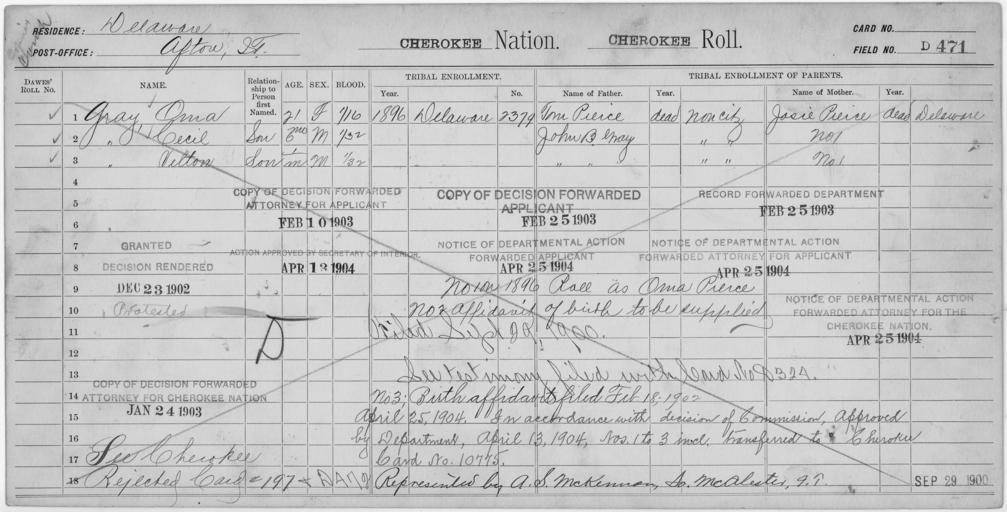 RESIDENCE: Delaware
POST-OFFICE: Afton, I.T.
CHEROKEE Nation. CHEROKEE Roll.
CARD NO.
FIELD NO. D 471
DAWES' ROLL NO. NAME. Relationship to Person first Named. AGE. SEX. BLOOD. TRIBAL ENROLLMENT. TRIBAL ENROLLMENT OF PARENTS.
Year. No. Name of Father. Year. Name of Mother. Year.
✓ 1 Gray Oma 21 F 1/16 1896 Delaware 2379 Tom Pierce dead non citz Josie Pierce dead Delaware
✓ 2 " Cecil Son M 1/32 John B. Gray " " No1
✓ 3 " Son M 1/32 " " " " " No.1
4
5 COPY OF DECISION FORWARDED ATTORNEY FOR APPLICANT COPY OF DECISION FORWARDED APPLICANT RECORD FORWARDED DEPARTMENT
6 FEB 10 1903 FEB 25 1903 FEB 25 1903
7 GRANTED ACTION APPROVED BY SECRETARY OF INTERIOR. NOTICE OF DEPARTMENTAL ACTION FORWARDED APPLICANT NOTICE OF DEPARTMENTAL ACTION FORWARDED ATTORNEY FOR APPLICANT
8 DECISION RENDERED APR 13 1904 APR 25 1904 APR 25 1904
9 DEC 23 1902 No1 on 1896 Roll as Oma Pierce
10 Protested No2 affidavit of birth to be supplied
NOTICE OF DEPARTMENTAL ACTION FORWARDED ATTORNEY FOR THE CHEROKEE NATION.
APR 25 1904
11 D Filed Sept 29, 1900.
12
13 See testimony filed with Card No D324.
COPY OF DECISION FORWARDED
14 ATTORNEY FOR CHEROKEE NATION No3: Birth affidavit filed Feb 18, 1902
JAN 24 1903
15 April 25, 1904. In accordance with decision of Commission, approved
16 by Department, April 13, 1904, Nos. 1 to 3 incl. transferred to Cherokee
17 See Cherokee Card No. 10775.
18 Rejected Card # 197 Represented by A. S. McKennon, So. McAlester, I.T. SEP 29 1900